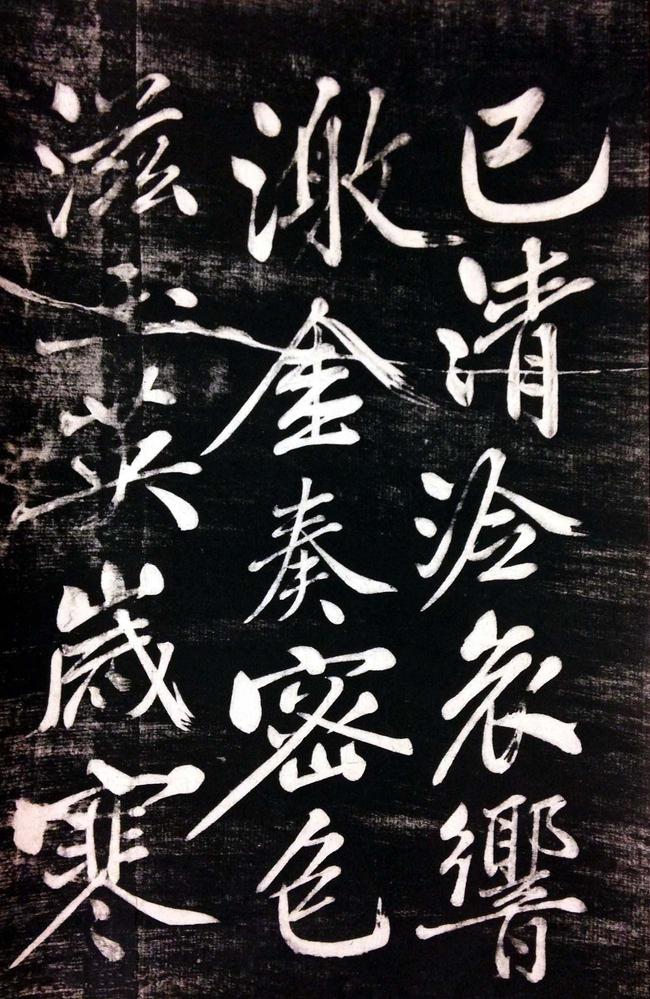 已清泠哀響
激金奏密色
滋玉英歲寒